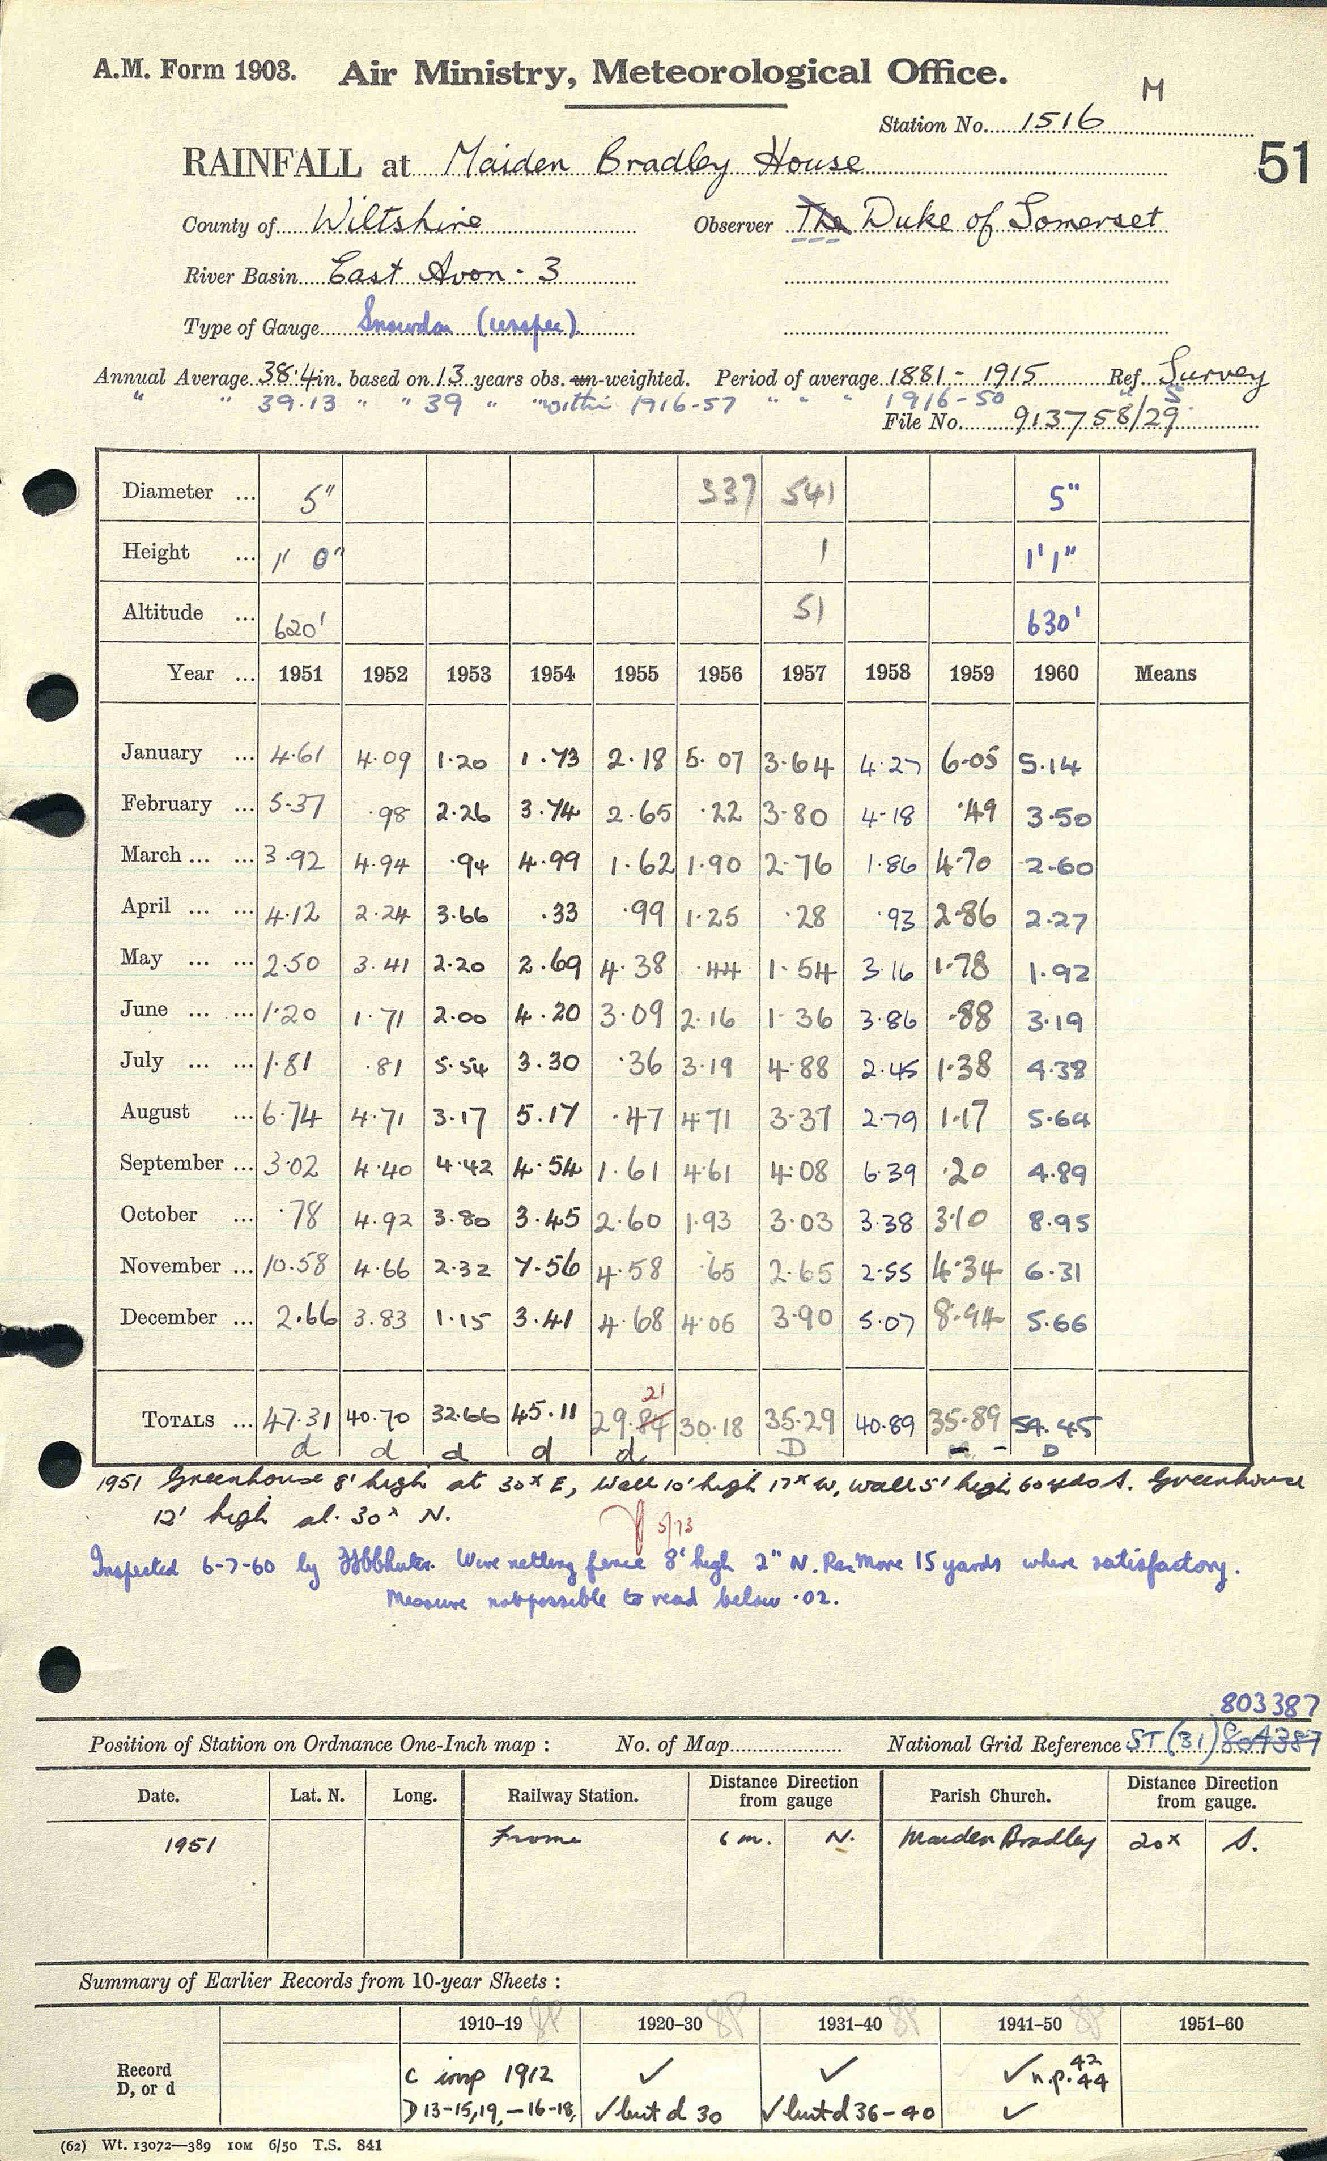 A.M. Form 1903. Air Ministry, Meteorological Office.
M
Station No. 1516
51
RAINFALL at Maiden Bradley House
County of Wiltshire Observer The Duke of Somerset
River Basin East Avon - 3
Type of Gauge Snowdon (unspec)
Annual Average 38.4 in. based on 13 years obs. un-weighted. Period of average 1881 - 1915 Ref. Survey
" " 39.13 " " 39 " " within 1916-57 " " " 1916-50 " S
File No. 913758/29
Diameter ... 5" 337 541 5"
Height ... 1' 0" 1 1'1"
Altitude ... 620' 51 630'
Year ... 1951 1952 1953 1954 1955 1956 1957 1958 1959 1960 Means
January ... 4.61 4.09 1.20 1.73 2.18 5.07 3.64 4.27 6.05 5.14
February ... 5.37 .98 2.26 3.74 2.65 .22 3.80 4.18 .49 3.50
March ... ... 3.92 4.94 .94 4.99 1.62 1.90 2.76 1.86 4.70 2.60
April ... ... 4.12 2.24 3.66 .33 .99 1.25 .28 .93 2.86 2.27
May ... ... 2.50 3.41 2.20 2.69 4.38 .44 1.54 3.16 1.78 1.92
June ... ... 1.20 1.71 2.00 4.20 3.09 2.16 1.36 3.86 .88 3.19
July ... ... 1.81 .81 5.54 3.30 .36 3.19 4.88 2.45 1.38 4.38
August ... 6.74 4.71 3.17 5.17 .47 4.71 3.37 2.79 1.17 5.64
September ... 3.02 4.40 4.42 4.54 1.61 4.61 4.08 6.39 .20 4.89
October ... .78 4.92 3.80 3.45 2.60 1.93 3.03 3.38 3.10 8.95
November ... 10.58 4.66 2.32 7.56 4.58 .65 2.65 2.55 4.34 6.31
December ... 2.66 3.83 1.15 3.41 4.68 4.05 3.90 5.07 8.94 5.66
21
TOTALS ... 47.31 40.70 32.66 45.11 29.84 30.18 35.29 40.89 35.89 54.45
d d d d d D D
1951 Greenhouse 8' high at 30x E, Wall 10' high 17x W, wall 5' high 60 yds S. Greenhouse
12' high at 30x N.
5/73
Inspected 6-7-60 by Wire netting fence 8' high 2" N. Rec. Move 15 yards where satisfactory.
Measure not possible to read below .02.
803387
Position of Station on Ordnance One-Inch map : No. of Map National Grid Reference ST (31) 804387
Date. Lat. N. Long. Railway Station. Distance Direction from gauge Parish Church. Distance Direction from gauge.
1951 Frome 6 m. N. Maiden Bradley 20x S.
Summary of Earlier Records from 10-year Sheets :
1910-19 1920-30 1931-40 1941-50 1951-60
Record D, or d
C inup 1912 ✓ ✓ ✓ n.p. 42 44
D 13-15,19, -16-18, ✓ but d 30 ✓ but d 36-40 ✓
(62) Wt. 13072—389 10M 6/50 T.S. 841